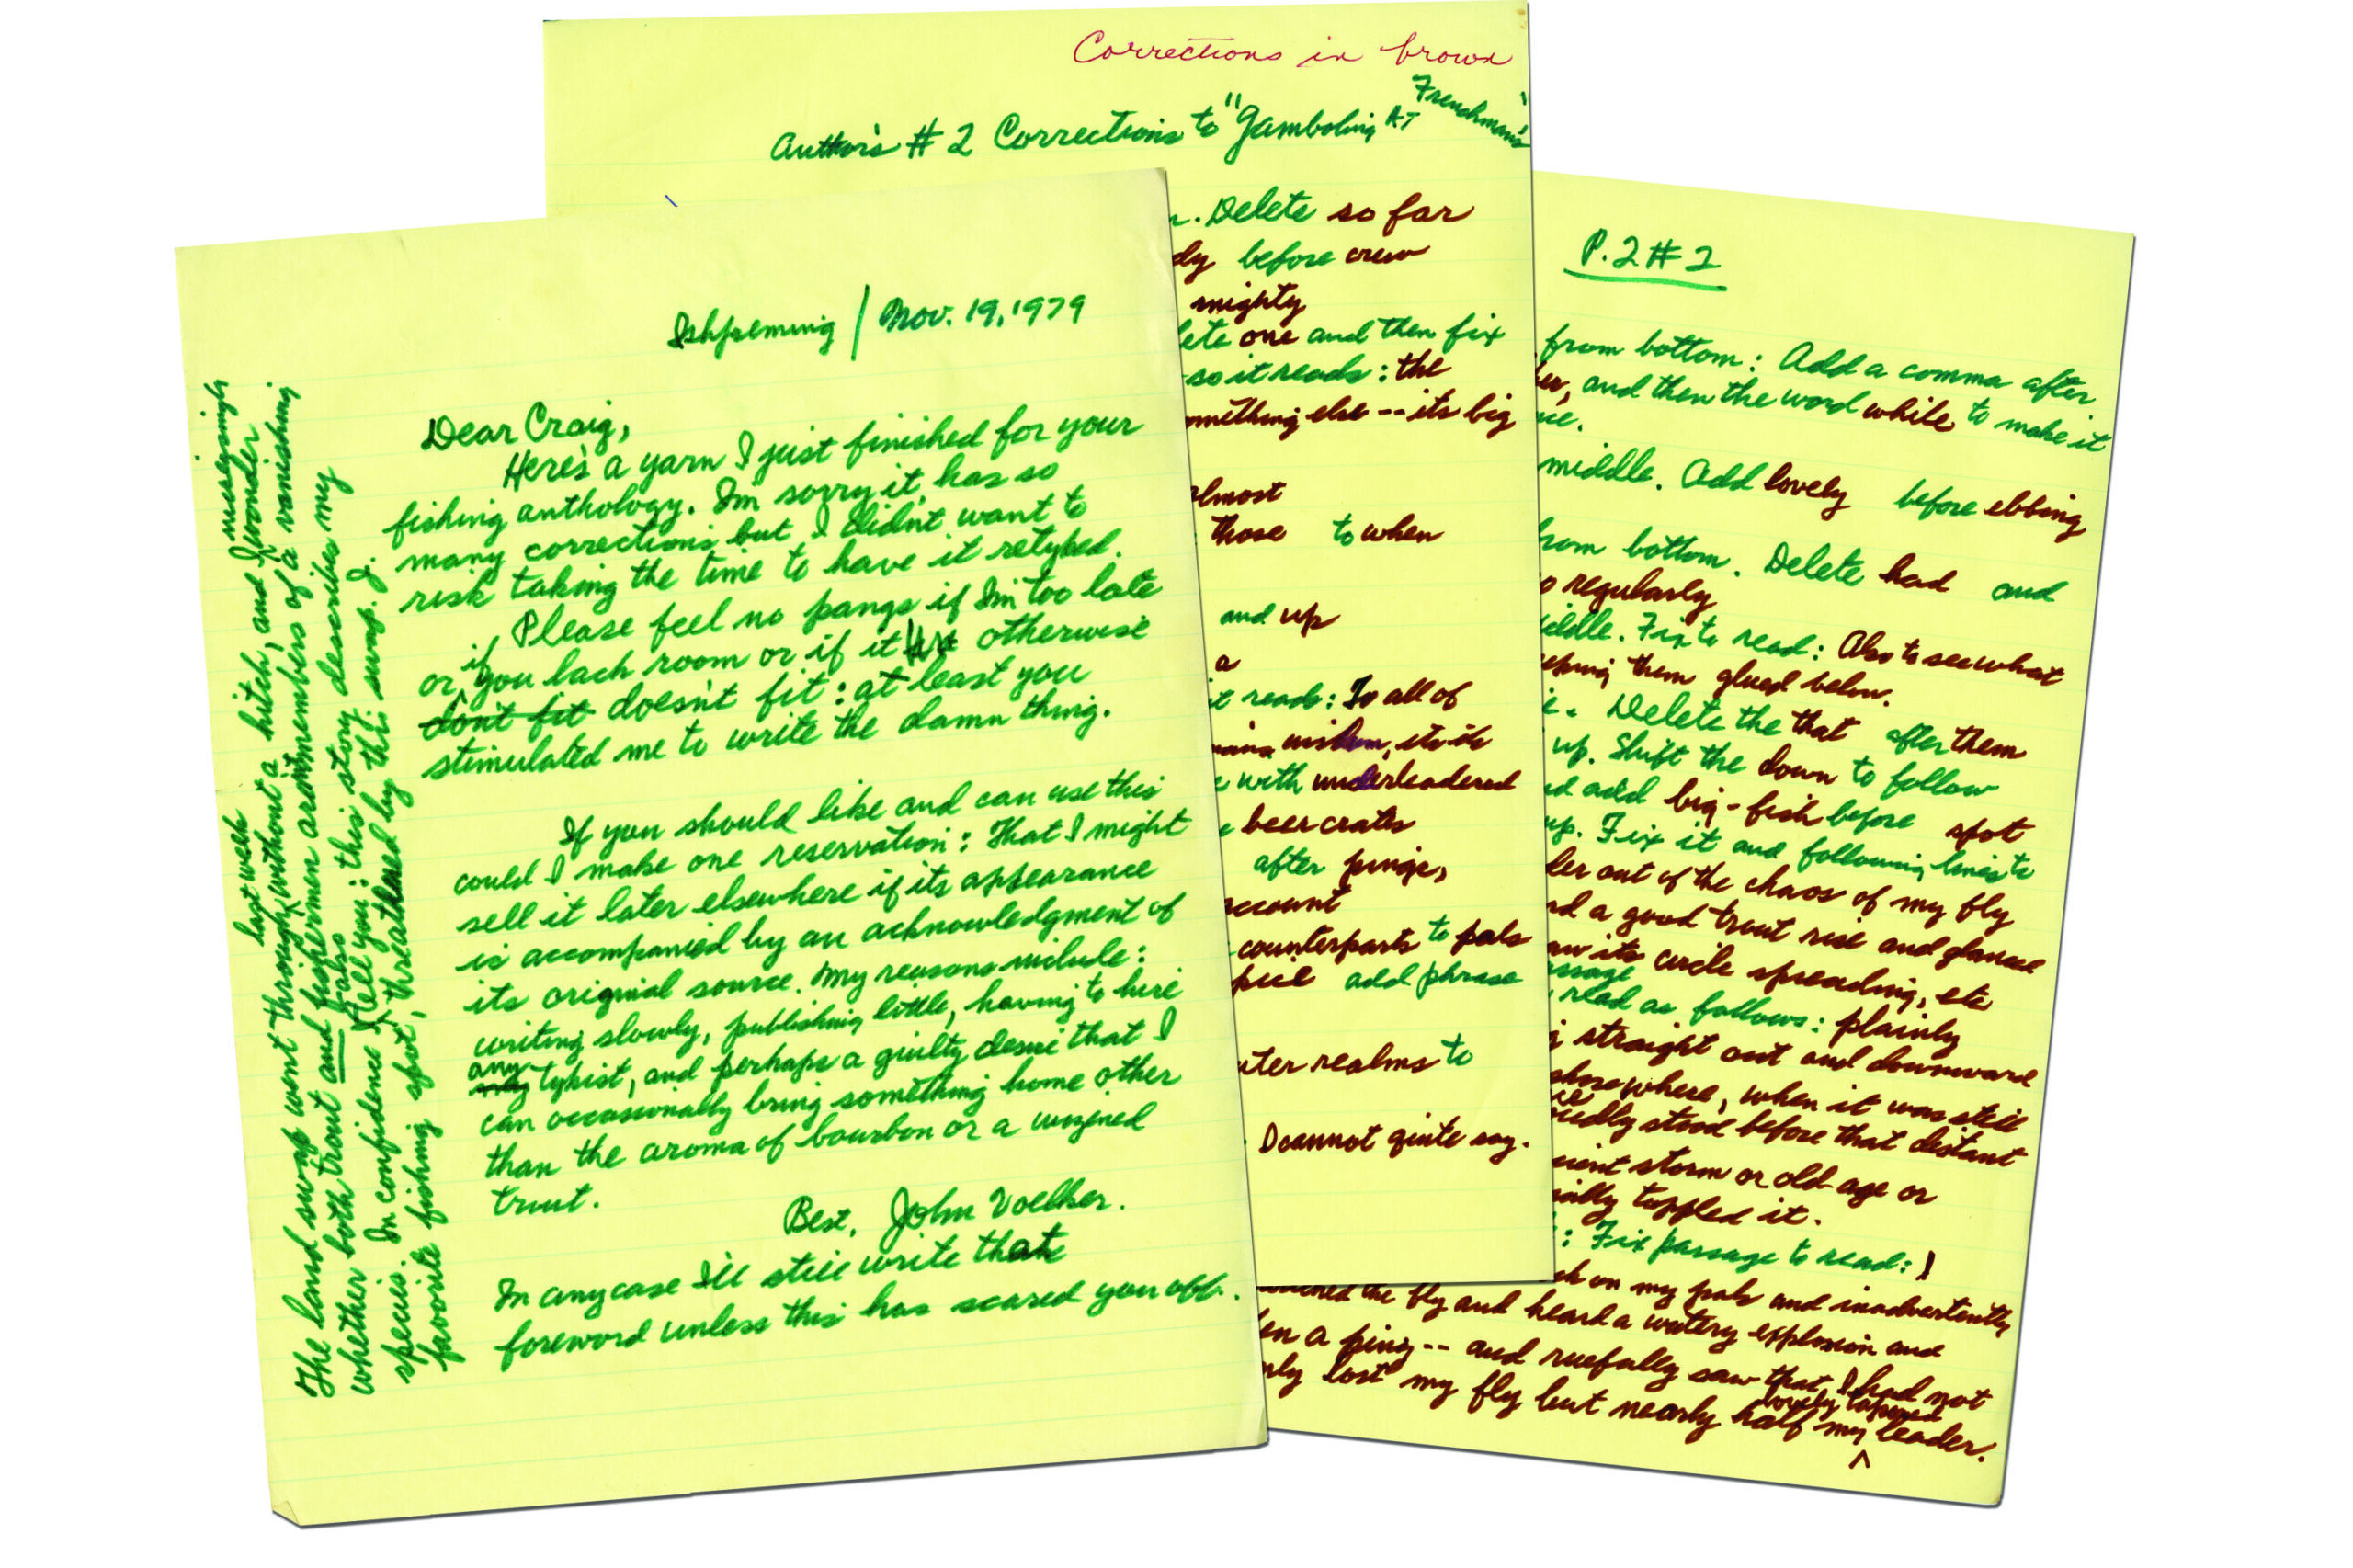 Ishpeming / Nov. 19, 1979
Dear Craig,
Here's a yarn I just finished for your
fishing anthology. I'm sorry it has so
many corrections but I didn't want to
risk taking the time to have it retyped.
Please feel no pangs if I'm too late
or if you lack room or if it otherwise
don't fit doesn't fit: at least you
stimulated me to write the damn thing.
If you should like and can use this
could I make one reservation: That I might
sell it later elsewhere if its appearance
is accompanied by an acknowledgment of
its original source. My reasons include:
writing slowly, publishing little, having to hire
any typist, and perhaps a guilty desire that I
can occasionally bring something home other
than the aroma of bourbon or a wizened
trout.
Best, John Voelker.
In any case I'll still write that
foreword unless this has scared you off.
The land swap went through last week without a hitch, and I increasingly wonder
whether both trout and fishermen aren't members of a vanishing
species. In confidence I also tell you: this story describes my
favorite fishing spot, threatened by this swap. J.
Corrections in brown
Author's #2 Corrections to "Gamboling AT Frenchman's"
. Delete so far
dy before crew
mighty
lete one and then fix
so it reads: the
mething else -- its big
lmost
those to when
and up
a
it reads: To all of
wisdom, its
with underleadered
beer crates
after pings,
account
counterparts to pals
add phrase
uter realms to
I cannot quite say.
P. 2 # 2
from bottom: Add a comma after
er, and then the word while to make it
middle. Add lovely before ebbing
from bottom. Delete had and
so regularly
iddle. Fix to read: Also to see what
eping them glued below.
. Delete the that after them
up. Shift the down to follow
nd add big-fish before spot
up. Fix it and following lines to
der out of the chaos of my fly
rd a good trout rise and glance
aw its circle spreading, etc
assage
read as follows: plainly
g straight out and downward
shore where, when it was still
edly stood before that distant
cient storm or old age or
ally toppled it.
: Fix passage to read: I
ck on my pals and inadvertently
ched the fly and heard a watery explosion and
en a ping -- and ruefully saw that I had not
nly lost my fly but nearly half my lovely tapered leader.